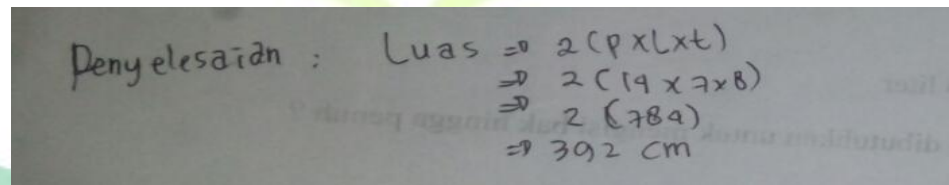 Penyelesaian : Luas => 2 (p x l x t)
=> 2 (14 x 7 x 8)
=> 2 (784)
=> 392 cm